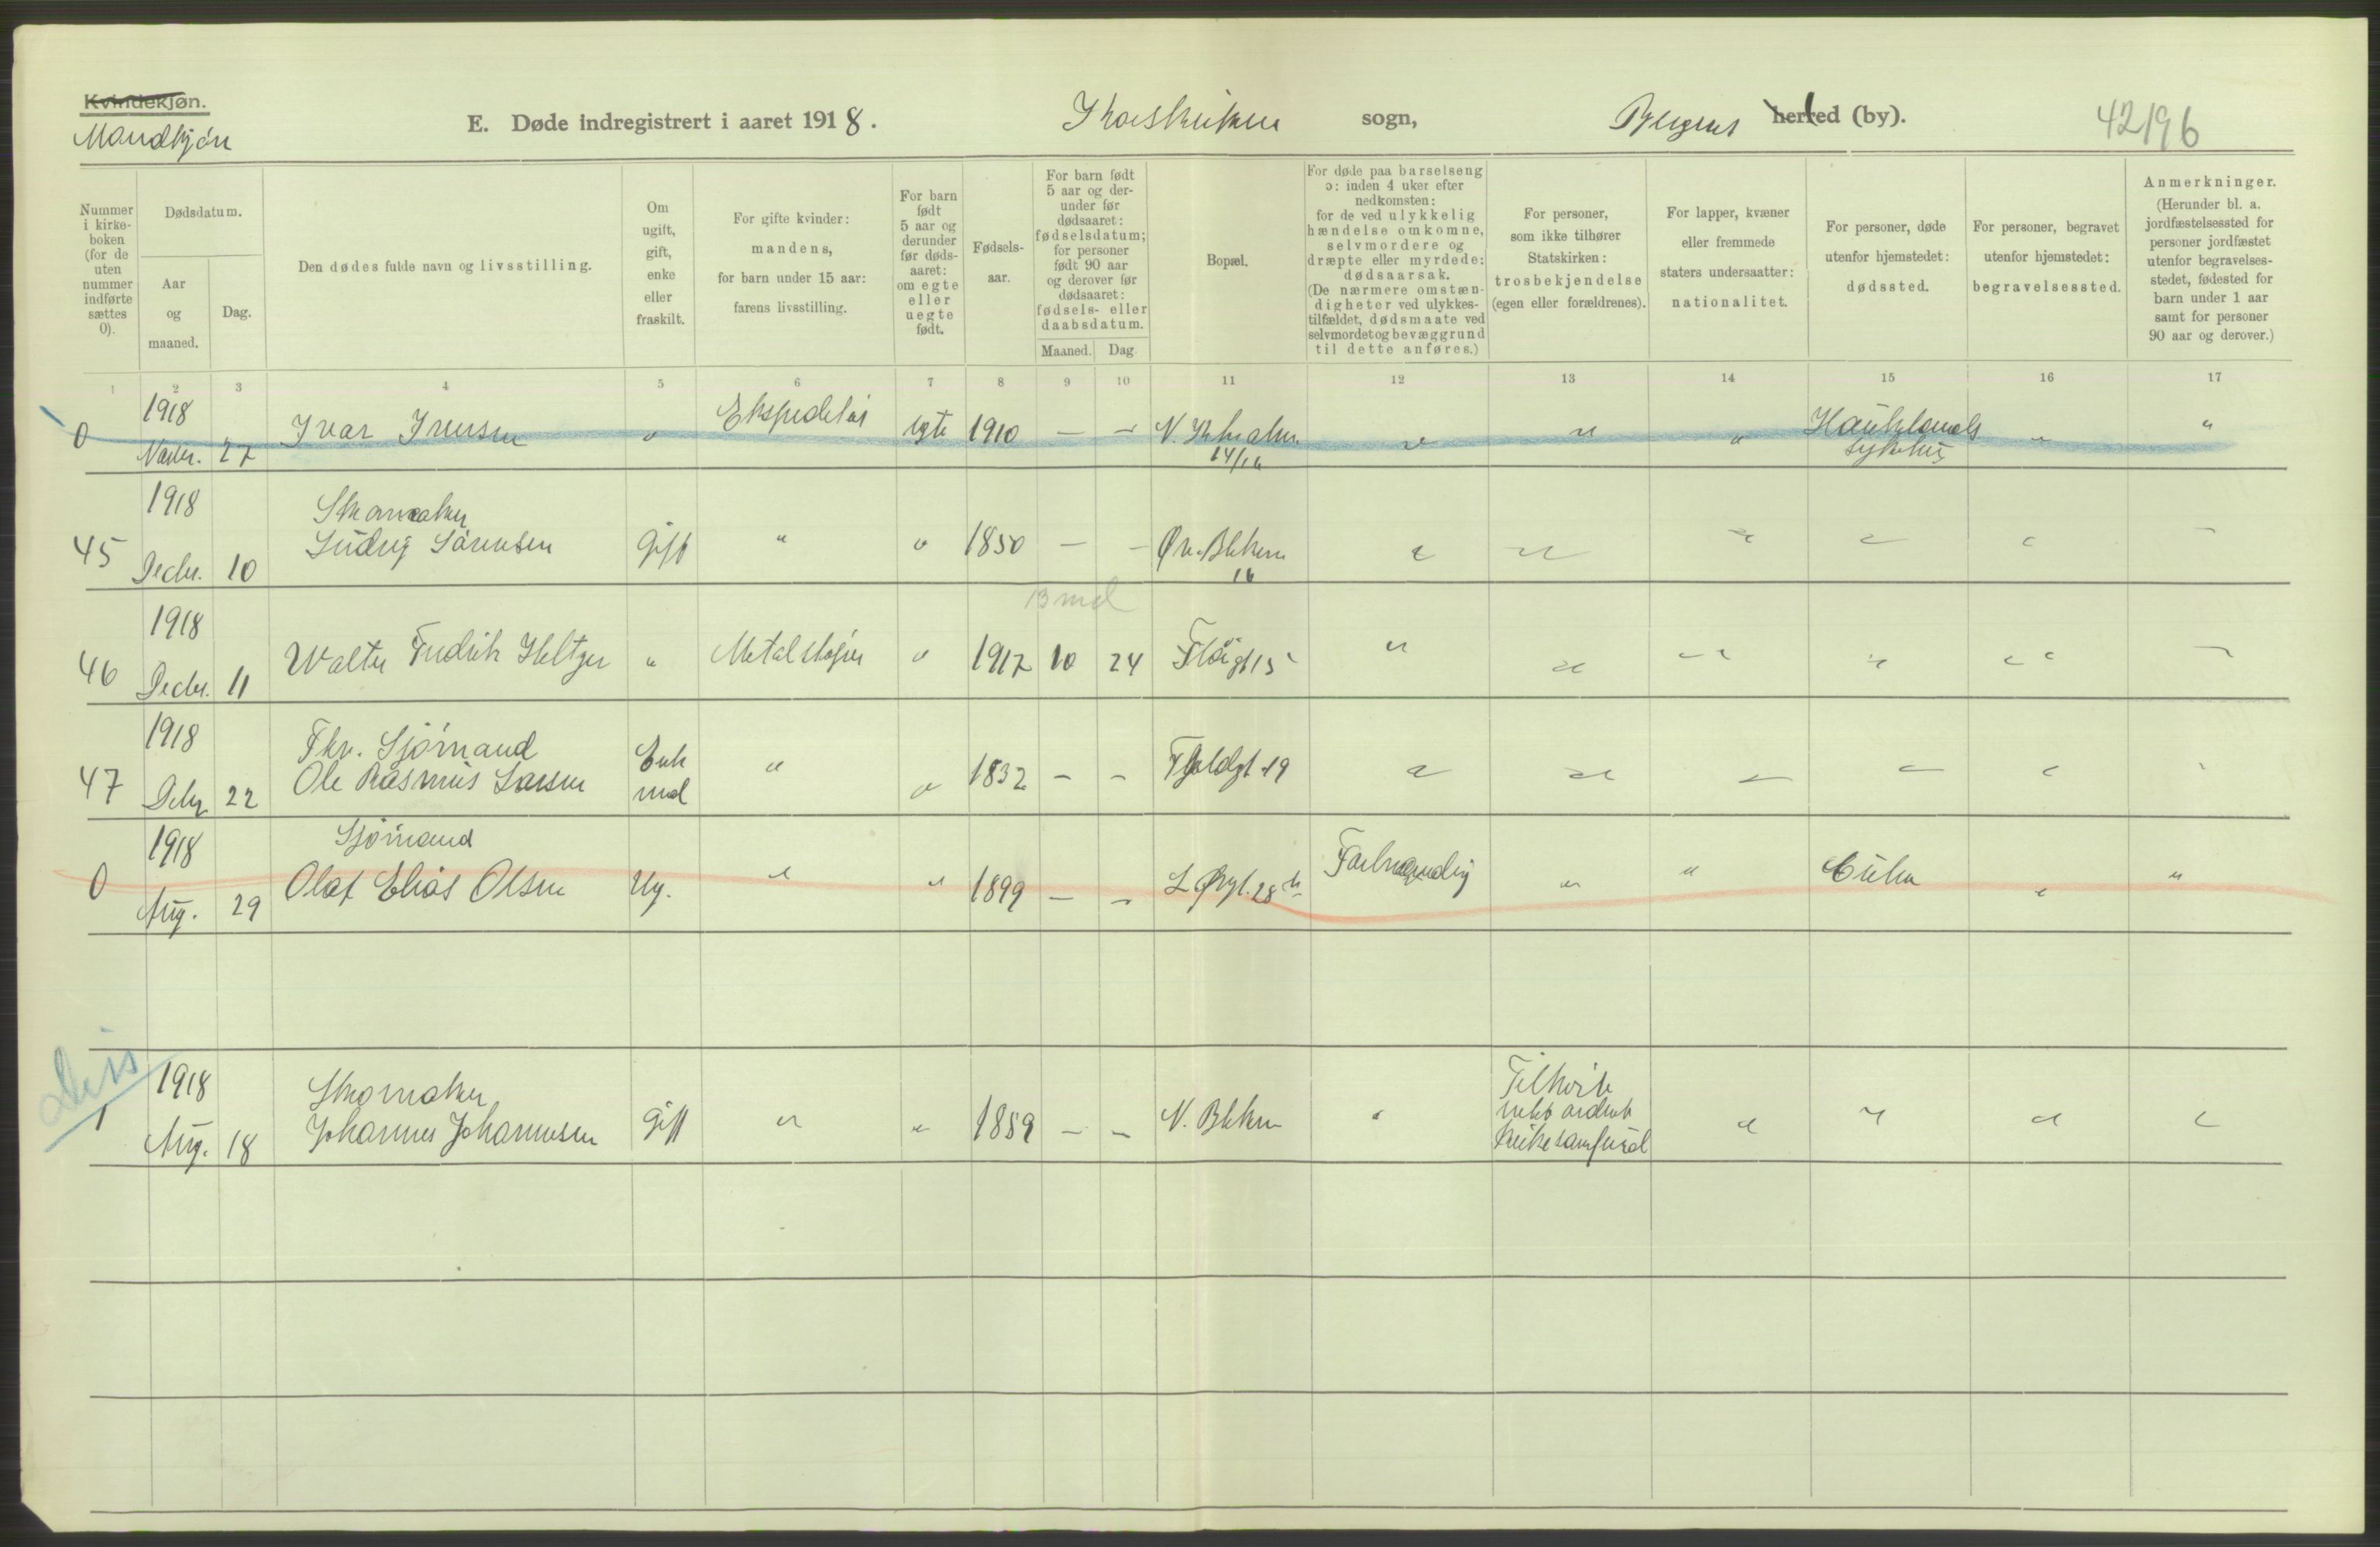 Kvindekjøn.
Mandkjøn
E. Døde indregistrert i aaret 1918. Korskirken sogn, Bergens herred (by). 42196
Nummer i kirkeboken (for de uten nummer indførte sættes 0).
Dødsdatum.
Aar og maaned.
Dag.
Den dødes fulde navn og livsstilling.
Om ugift, gift, enke eller fraskilt.
For gifte kvinder: mandens, for barn under 15 aar: farens livsstilling.
For barn født 5 aar og derunder før dødsaaret: om egte eller uegte født.
Fødselsaar.
For barn født 5 aar og derunder før dødsaaret: fødselsdatum; for personer født 90 aar og derover før dødsaaret: fødsels- eller daabsdatum.
Maaned. Dag.
Bopæl.
For døde paa barselseng ɔ: inden 4 uker efter nedkomsten: for de ved ulykkelig hændelse omkomne, selvmordere og dræpte eller myrdede: dødsaarsak. (De nærmere omstændigheter ved ulykkestilfældet, dødsmaate ved selvmordet og bevæggrund til dette anføres.)
For personer, som ikke tilhører Statskirken: trosbekjendelse (egen eller forældrenes).
For lapper, kvæner eller fremmede staters undersaatter: nationalitet.
For personer, døde utenfor hjemstedet: dødssted.
For personer, begravet utenfor hjemstedet: begravelsessted.
Anmerkninger. (Herunder bl. a. jordfæstelsessted for personer jordfæstet utenfor begravelsesstedet, fødested for barn under 1 aar samt for personer 90 aar og derover.)
1 2 3 4 5 6 7 8 9 10 11 12 13 14 15 16 17
0 1918 Novbr. 27 Ivar Iversen " Ekspeditør egte 1910 — — 14/16 " " " Hauklands sykehus " "
45 1918 Decbr. 10 Skomaker Ludvig Sørensen Gift " " 1850 — — Øv. Blekevn 16 " " " " " "
13 md
46 1918 Decbr. 11 Walter Fredrik Heltzer " Metalstøper " 1917 10 24 Fløigt 15 " " " " " "
47 1918 Debr 22 Fhv. Sjømand Ole Rasmus Larsen Enkemd " " 1832 — — Fjeldgt 19 " " " " " "
0 1918 Aug. 29 Sjømand Olaf Elias Olsen Ug. " " 1899 — — L. Øvgt. 28 b Forbrænding " " Cuba " "
Dis
1 1918 Aug. 18 Skomaker Johannes Johannesen Gift " " 1859 — — N. Blekevn " Tilhørte ikke ordnet kirkesamfund " " " "